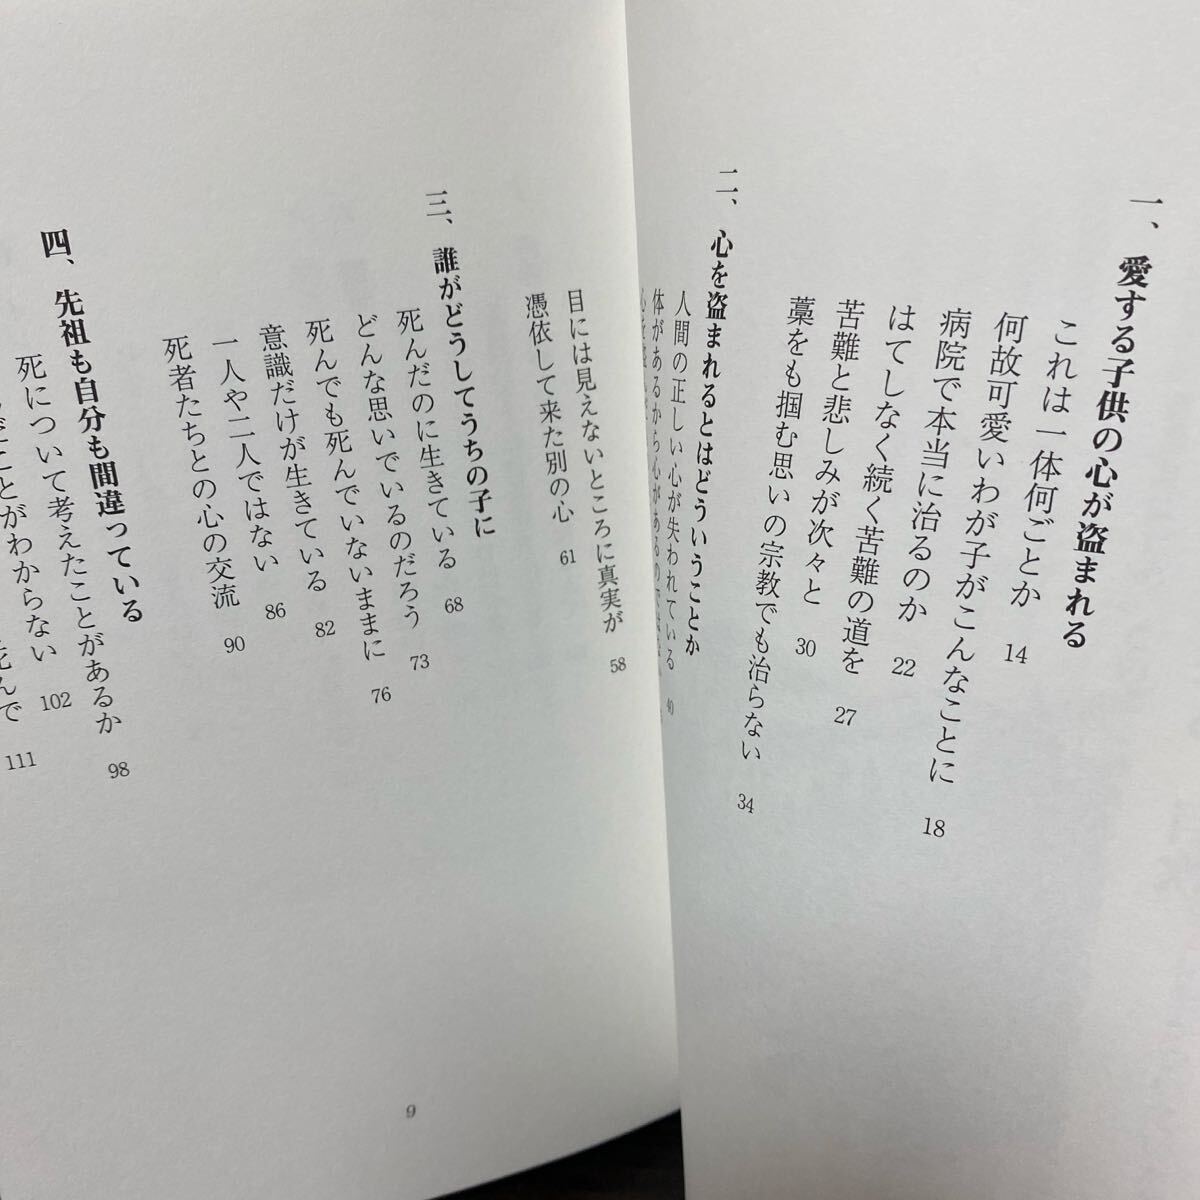 一、愛する子供の心が盗まれる
これは一体何ごとか 14
何故可愛いわが子がこんなことに 18
病院で本当に治るのか 22
はてしなく続く苦難の道を 27
苦難と悲しみが次々と 30
藁をも掴む思いの宗教でも治らない 34
二、心を盗まれるとはどういうことか
人間の正しい心が失われている 40
体があるから心があるのでは
目には見えないところに真実が 58
憑依して来た別の心 61
三、誰がどうしてうちの子に
死んだのに生きている 68
どんな思いでいるのだろう 73
死んでも死んでいないままに 76
意識だけが生きている 82
一人や二人ではない 86
死者たちとの心の交流 90
四、先祖も自分も間違っている
死について考えたことがあるか 98
ことがわからない 102
死んで 111
9